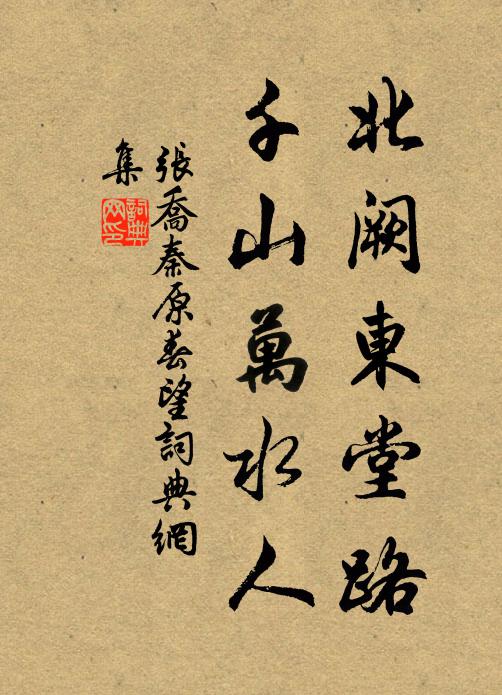 北闕東堂路
千山萬水人
張喬秦原春望詞典網
集
詞典
網印